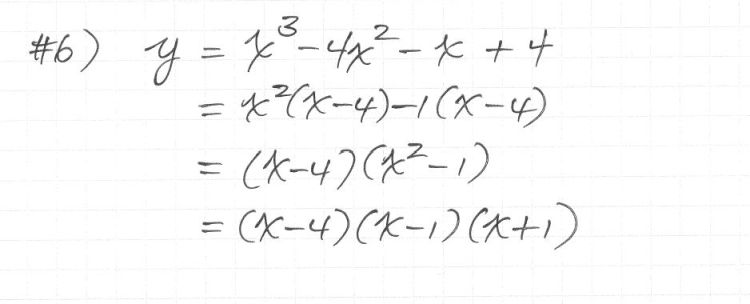 #6) y = x³ - 4x² - x + 4
= x²(x-4)-1(x-4)
= (x-4)(x²-1)
= (x-4)(x-1)(x+1)